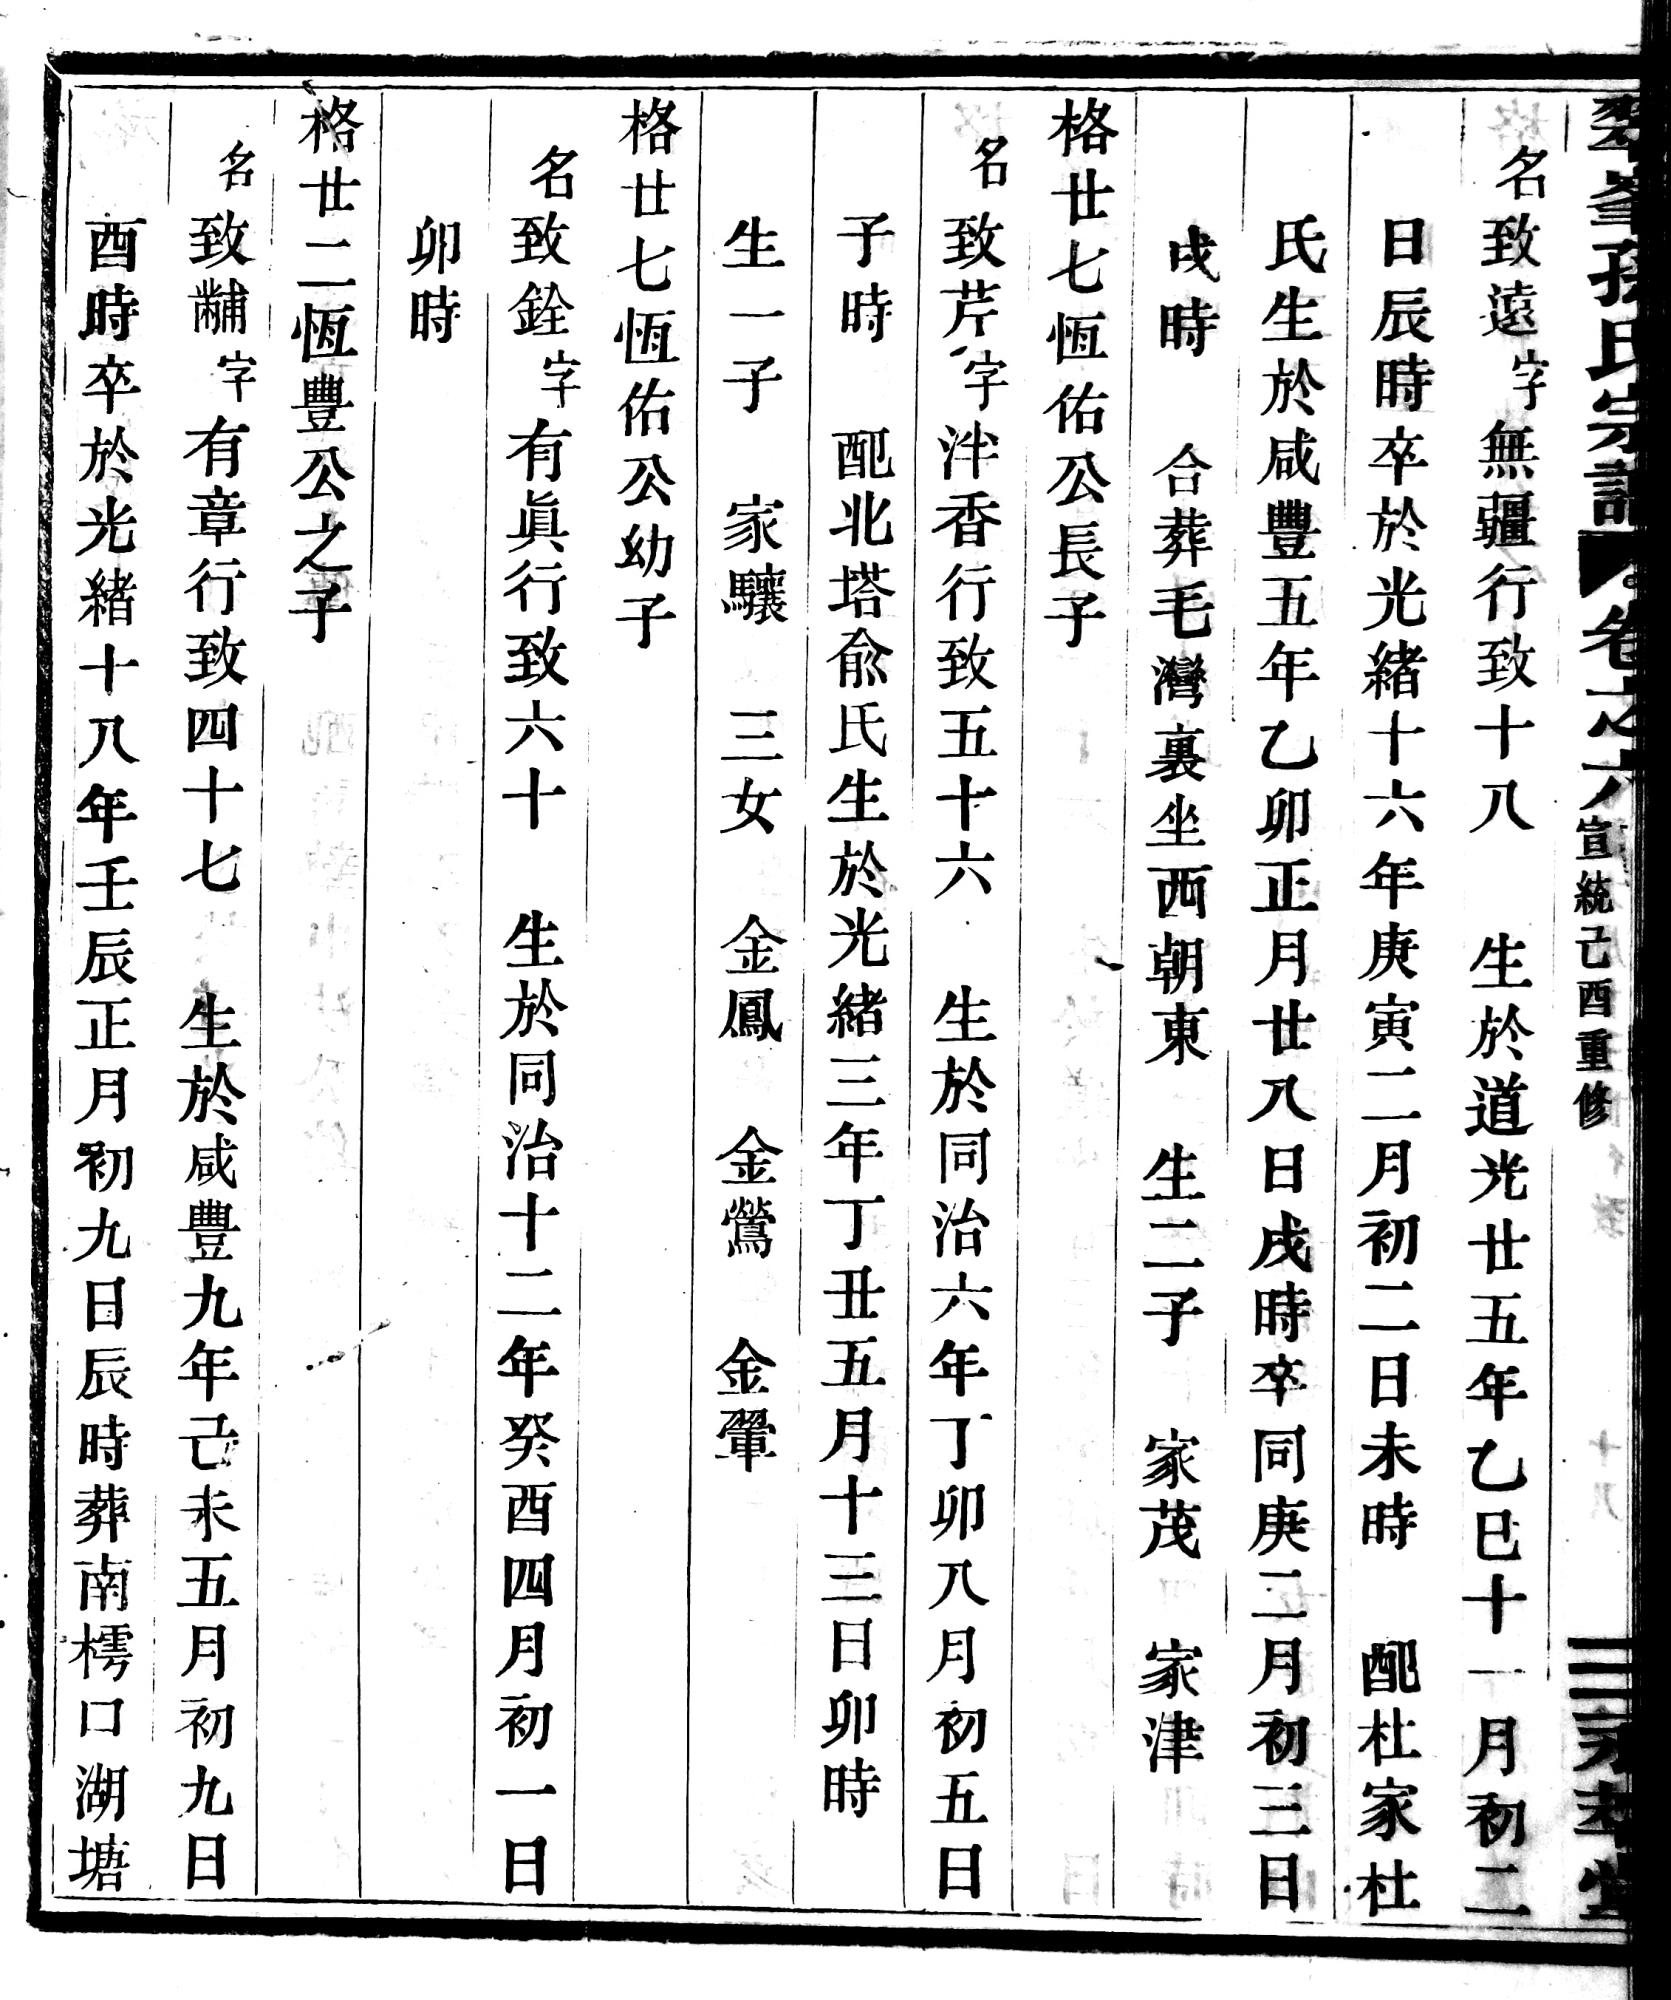 峯孫氏宗譜 卷之六 宣統己酉重修 三 永 堂
名致遠字無疆行致十八 生於道光廿五年乙巳十一月初二
日辰時卒於光緒十六年庚寅二月初二日未時 配杜家杜
氏生於咸豐五年乙卯正月廿八日戌時卒同庚二月初三日
戌時 合葬毛灣裏坐西朝東 生二子 家茂 家津
格廿七恆佑公長子
名致芹字泮香行致五十六 生於同治六年丁卯八月初五日
子時 配北塔俞氏生於光緒三年丁丑五月十三日卯時
生一子 家驤 三女 金鳳 金鶯 金翬
格廿七恆佑公幼子
名致銓字有眞行致六十 生於同治十二年癸酉四月初一日
卯時
格廿二恆豐公之子
名致黼字有章行致四十七 生於咸豐九年己未五月初九日
酉時卒於光緒十八年壬辰正月初九日辰時葬南樗口湖塘